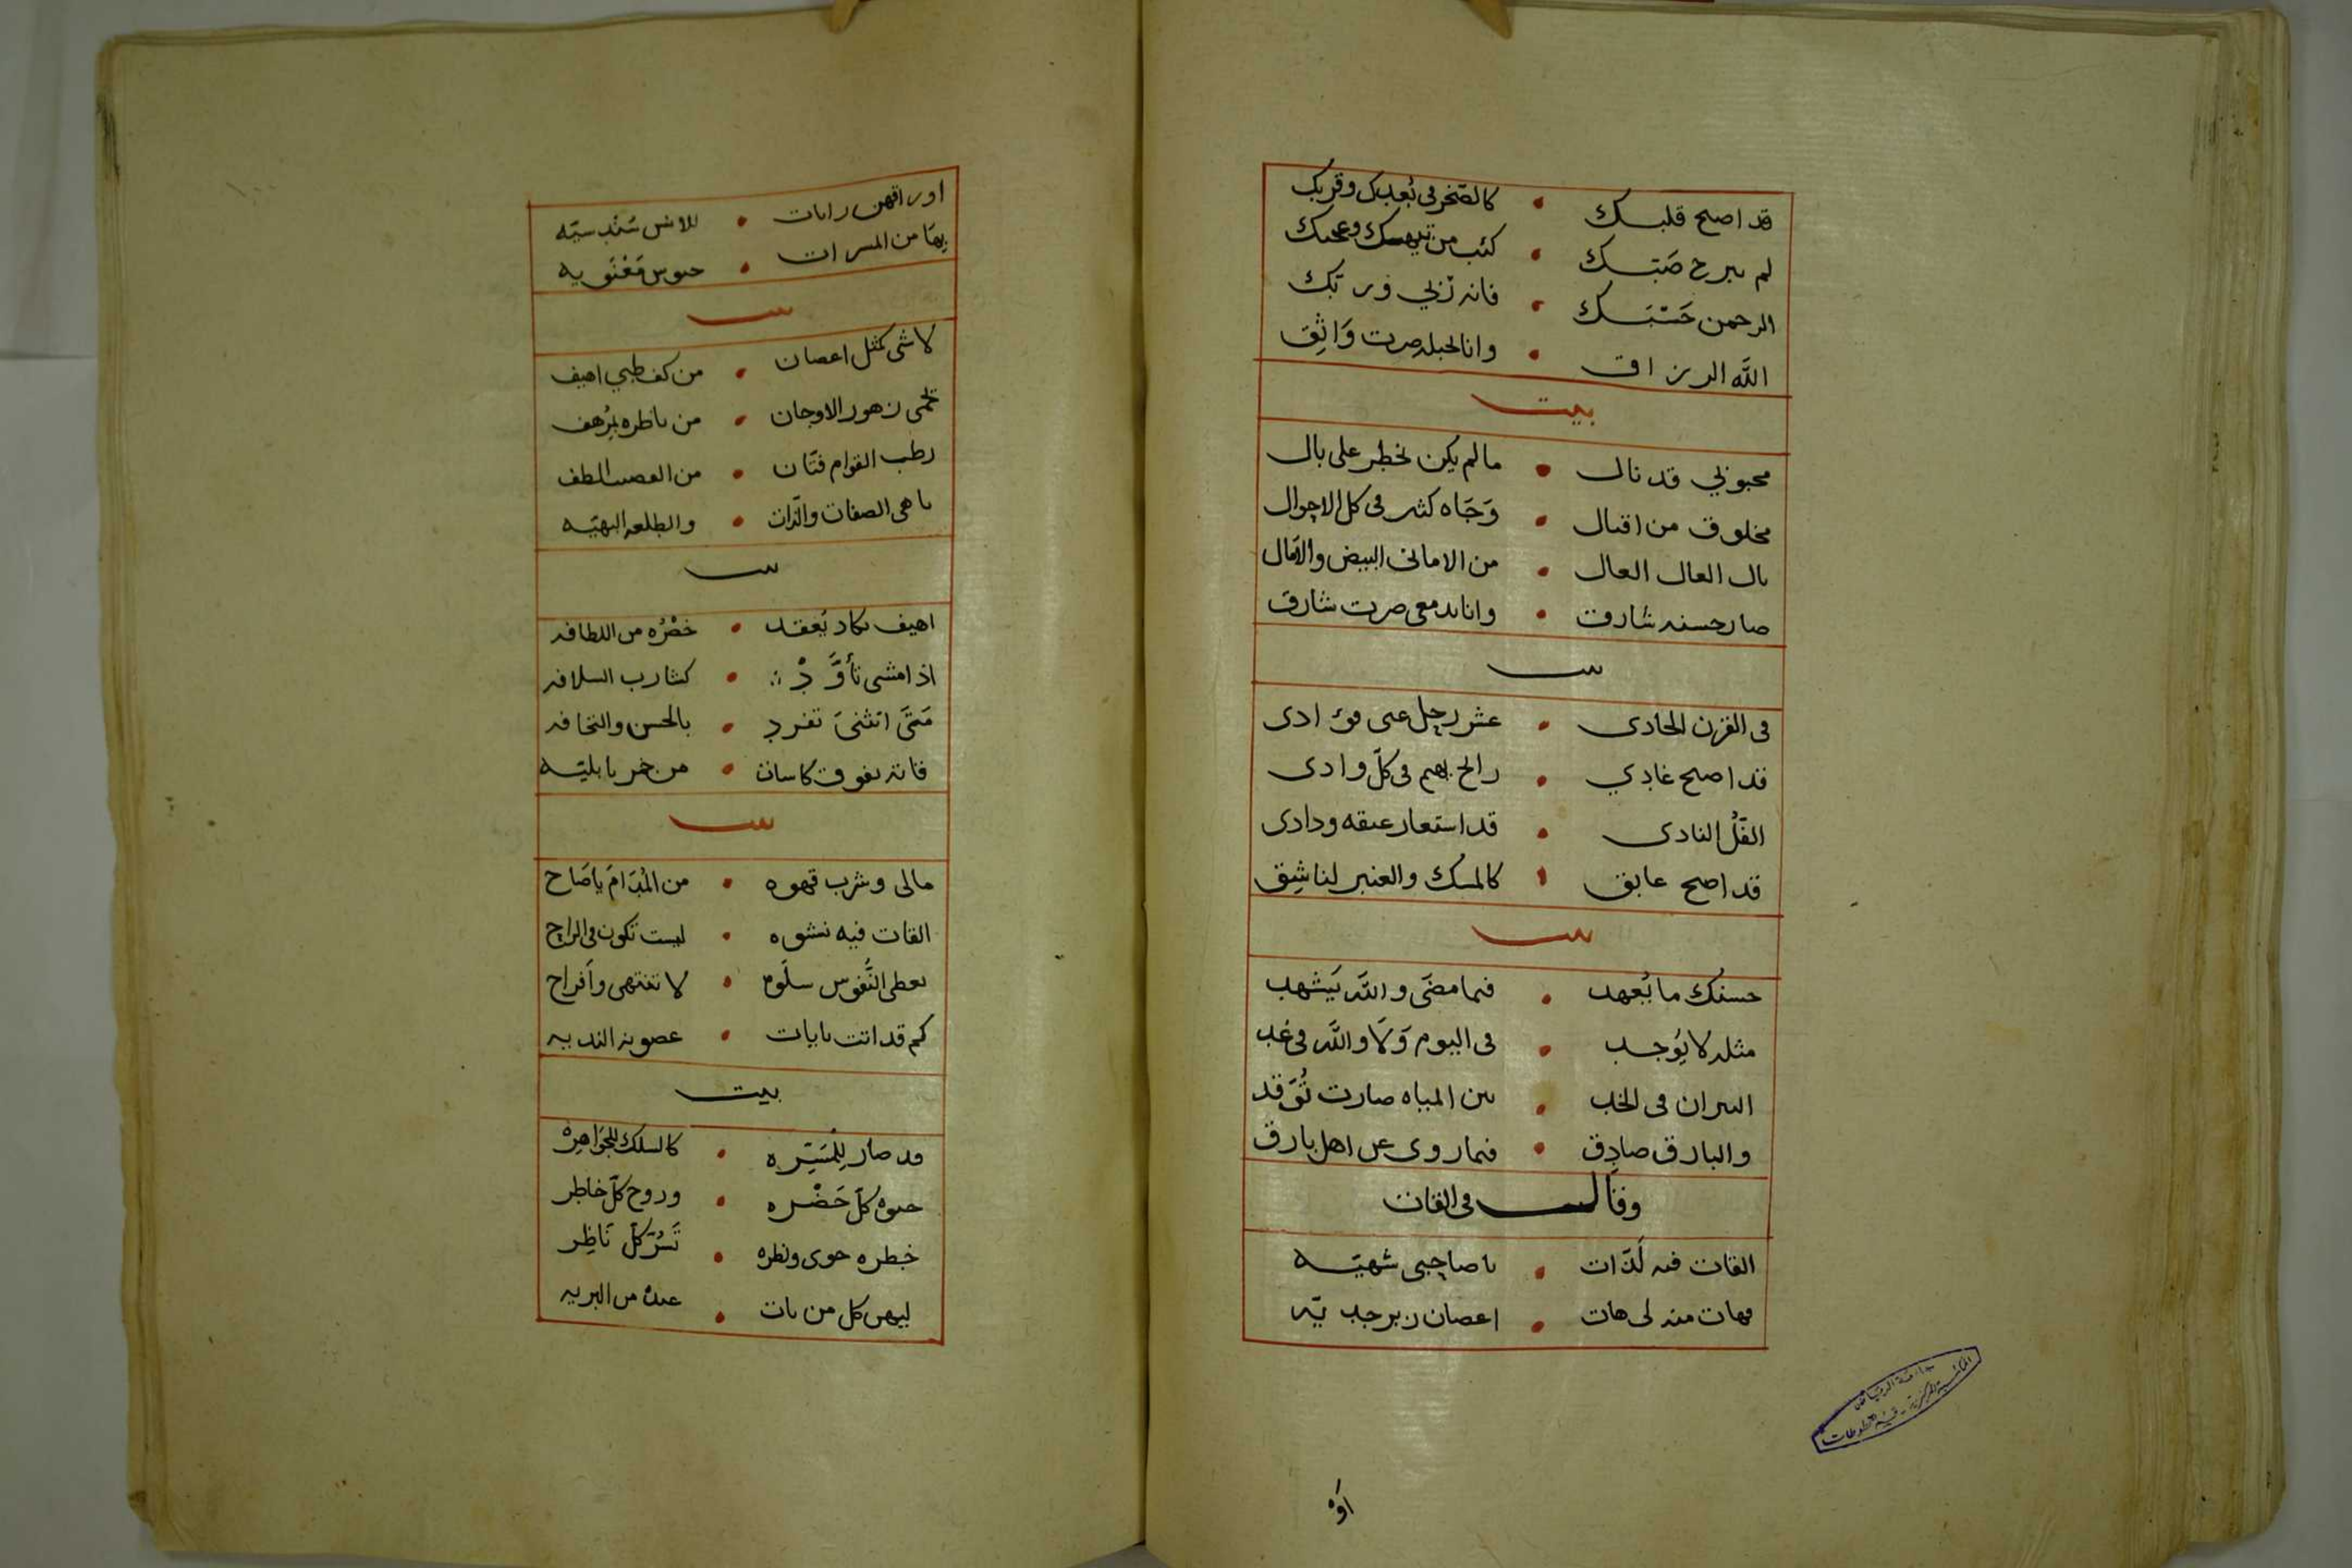 قد اصبح قلبك • كالصّخر فى بُعدك وقربك
لم يبرح صَبّك • كئب من تيهك وعجبك
الرحمن حَسْبَك • فانه رَبّي وربّك
الله الرزاق • وانا لحبله صرت وَاثِق
بيت
محبوبي قد نال • ما لم يكن يخطر على بال
مخلوق من اقبال • وَجَاه كثير فى كل الاحوال
نال العال العال • من الامانى البيض والآمال
صار حسنه شارق • وانا بدمعى صرت شارق
بيت
فى القرن الحادى • عشر رحل عنى فؤادى
قد اصبح غادِي • رايح يهيم فى كلّ وادى
الفُلّ النادى • قد استعار عبقه ودادى
قد اصبح عابق • كالمسك والعنبر لناشِق
بيت
حسنك ما يُعهد • فيما مضَى والله يَشهد
مثله لا يُوجد • فى اليوم وَلَا والله فى غد
النيران فى الخد • بين المياه صارت تُوقَد
والبارق صادِق • فيما روى عن اهل بارق
وقال فى القات
القات فيه لَذّات • يا صاحبى شهيّه
فهات منه لى هات • اغصان زبرجديّه
اوْ
اوراقهن رايات • للانس سُندسيّه
بهَا من المسرات • جيوش مَعْنَويه
بيت
لا شى كمثل اغصان • من كف ظبي اهيف
يحمى زهور الاوجان • من ناظره بمُرهف
رطب القوام فتّان • من الغصن الطف
باهى الصفات والذّات • والطلعه البهيّه
بيت
اهيف يكاد يُعقد • خصْرُه من اللطافه
اذا مشى تأوَّدْ • كشارب السلافه
مَتَى انثنىَ تفرد • بالحسن والنحافه
فاته يفوق كاسات • من خمر بابليّه
بيت
مالى وشرب قهوه • من المُدَامَ يا صَاح
القات فيه نشوه • ليست تكون فى الراح
يعطى النُّفوس سلوه • لا تنتهى وأفراح
كم قد اتت بايات • غصونه النديه
بيت
قد صار للمَسَرّه • كالسلك للجَوَاهِرْ
حيوة كلّ حَضْره • وروح كلّ خاطر
خطره حوى ونظره • تَسُرّ كلّ نَاظِر
ليهن كل من بات • عنده من البريه
جامعة الرياض
المكتبة المركزية - قسم المخطوطات